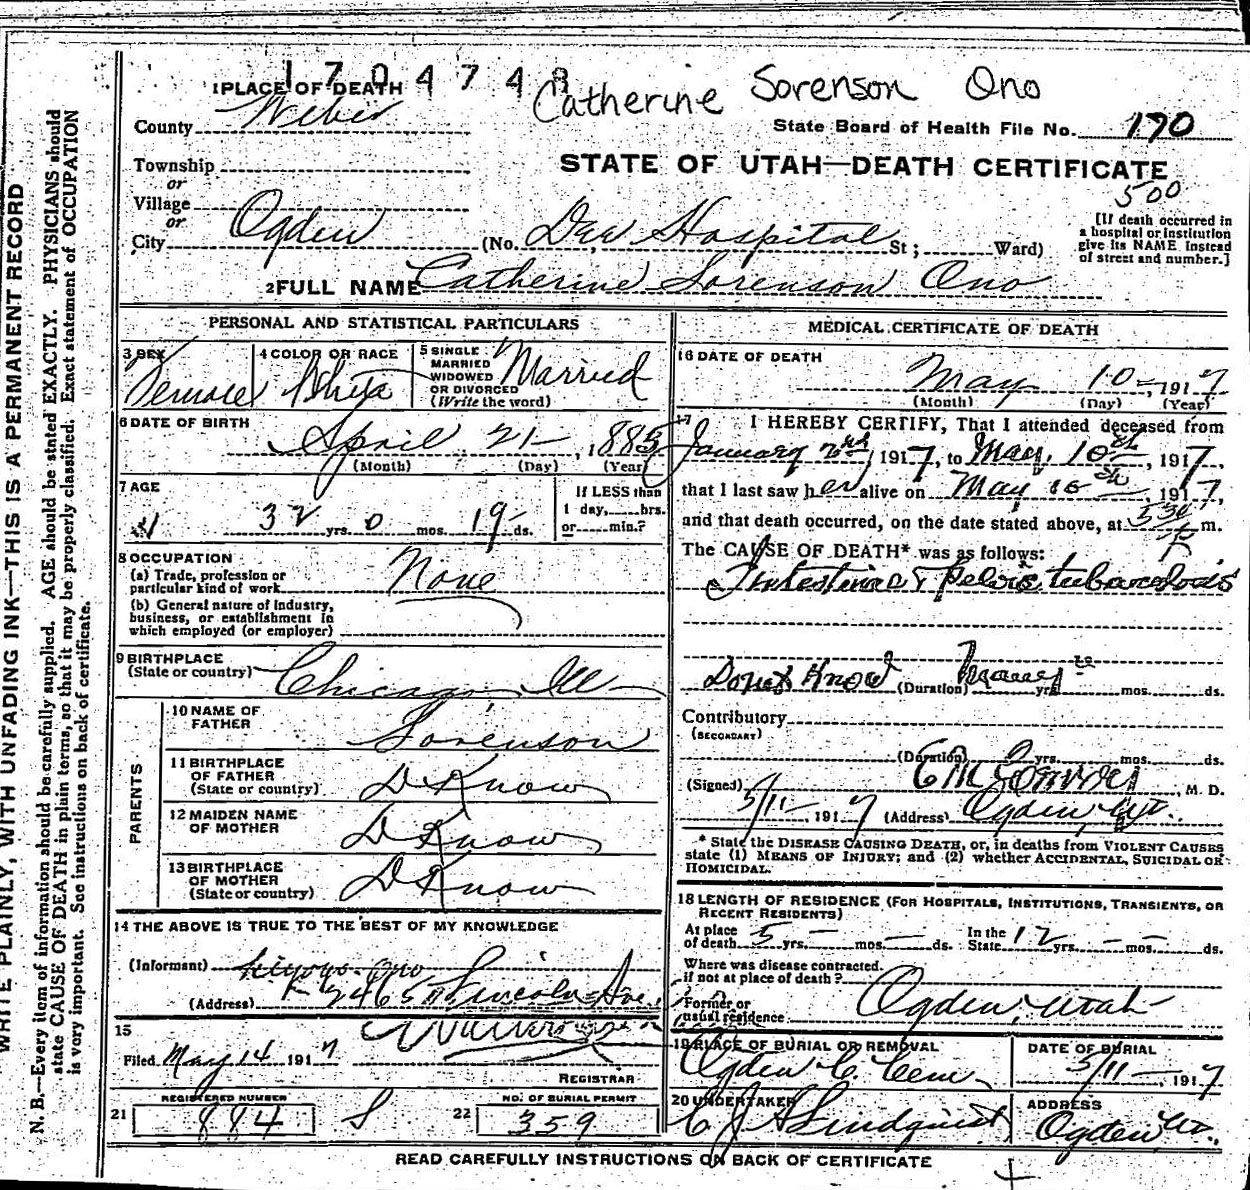 1704748
Catherine Sorenson Ono
1 PLACE OF DEATH
County Weber
State Board of Health File No. 190
Township
or
STATE OF UTAH—DEATH CERTIFICATE
500
Village
or
City Ogden (No. Dee Hospital St; Ward)
[If death occurred in
a hospital or institution
give its NAME instead
of street and number.]
2 FULL NAME Catherine Sorenson Ono
PERSONAL AND STATISTICAL PARTICULARS
3 SEX Female
4 COLOR OR RACE White
5 SINGLE
MARRIED
WIDOWED
OR DIVORCED
(Write the word)
Married
6 DATE OF BIRTH
April 21, 1885
(Month) (Day) (Year)
7 AGE
32 yrs. 0 mos. 19 ds.
If LESS than
1 day, hrs.
or min.?
8 OCCUPATION
(a) Trade, profession or
particular kind of work None
(b) General nature of industry,
business, or establishment in
which employed (or employer)
9 BIRTHPLACE
(State or country) Chicago Ill
PARENTS
10 NAME OF
FATHER Sorenson
11 BIRTHPLACE
OF FATHER
(State or country) D Know
12 MAIDEN NAME
OF MOTHER D Know
13 BIRTHPLACE
OF MOTHER
(State or country) D Know
14 THE ABOVE IS TRUE TO THE BEST OF MY KNOWLEDGE
(Informant) Ono
(Address) Lincoln Ave
15
Filed May 14 1917
REGISTRAR
21 REGISTERED NUMBER
884 S
22 NO. OF BURIAL PERMIT
359
MEDICAL CERTIFICATE OF DEATH
16 DATE OF DEATH
May 10, 1917
(Month) (Day) (Year)
17 I HEREBY CERTIFY, That I attended deceased from
January 2nd, 1917, to May 10th, 1917,
that I last saw her alive on May 10th, 1917,
and that death occurred, on the date stated above, at 530 P m.
The CAUSE OF DEATH* was as follows:
Intestinal & Pelvic tuberculosis
Dont Know (Duration) many yrs. mos. ds.
Contributory
(SECONDARY)
(Duration) yrs. mos. ds.
(Signed) , M. D.
5/11, 1917 (Address) Ogden Ut.
* State the DISEASE CAUSING DEATH, or, in deaths from VIOLENT CAUSES
state (1) MEANS OF INJURY; and (2) whether ACCIDENTAL, SUICIDAL OR
HOMICIDAL.
18 LENGTH OF RESIDENCE (FOR HOSPITALS, INSTITUTIONS, TRANSIENTS, OR
RECENT RESIDENTS)
At place
of death 5 yrs. — mos. — ds.
In the
State 12 yrs. — mos. — ds.
Where was disease contracted.
if not at place of death?
Former or
usual residence Ogden, Utah
19 PLACE OF BURIAL OR REMOVAL
Ogden C. Cem
DATE OF BURIAL
5/11, 1917
20 UNDERTAKER
C J A Lindquist
ADDRESS
Ogden Ut.
READ CAREFULLY INSTRUCTIONS ON BACK OF CERTIFICATE
WRITE PLAINLY, WITH UNFADING INK—THIS IS A PERMANENT RECORD
N. B.—Every item of information should be carefully supplied. AGE should be stated EXACTLY. PHYSICIANS should
state CAUSE OF DEATH in plain terms, so that it may be properly classified. Exact statement of OCCUPATION
is very important. See instructions on back of certificate.